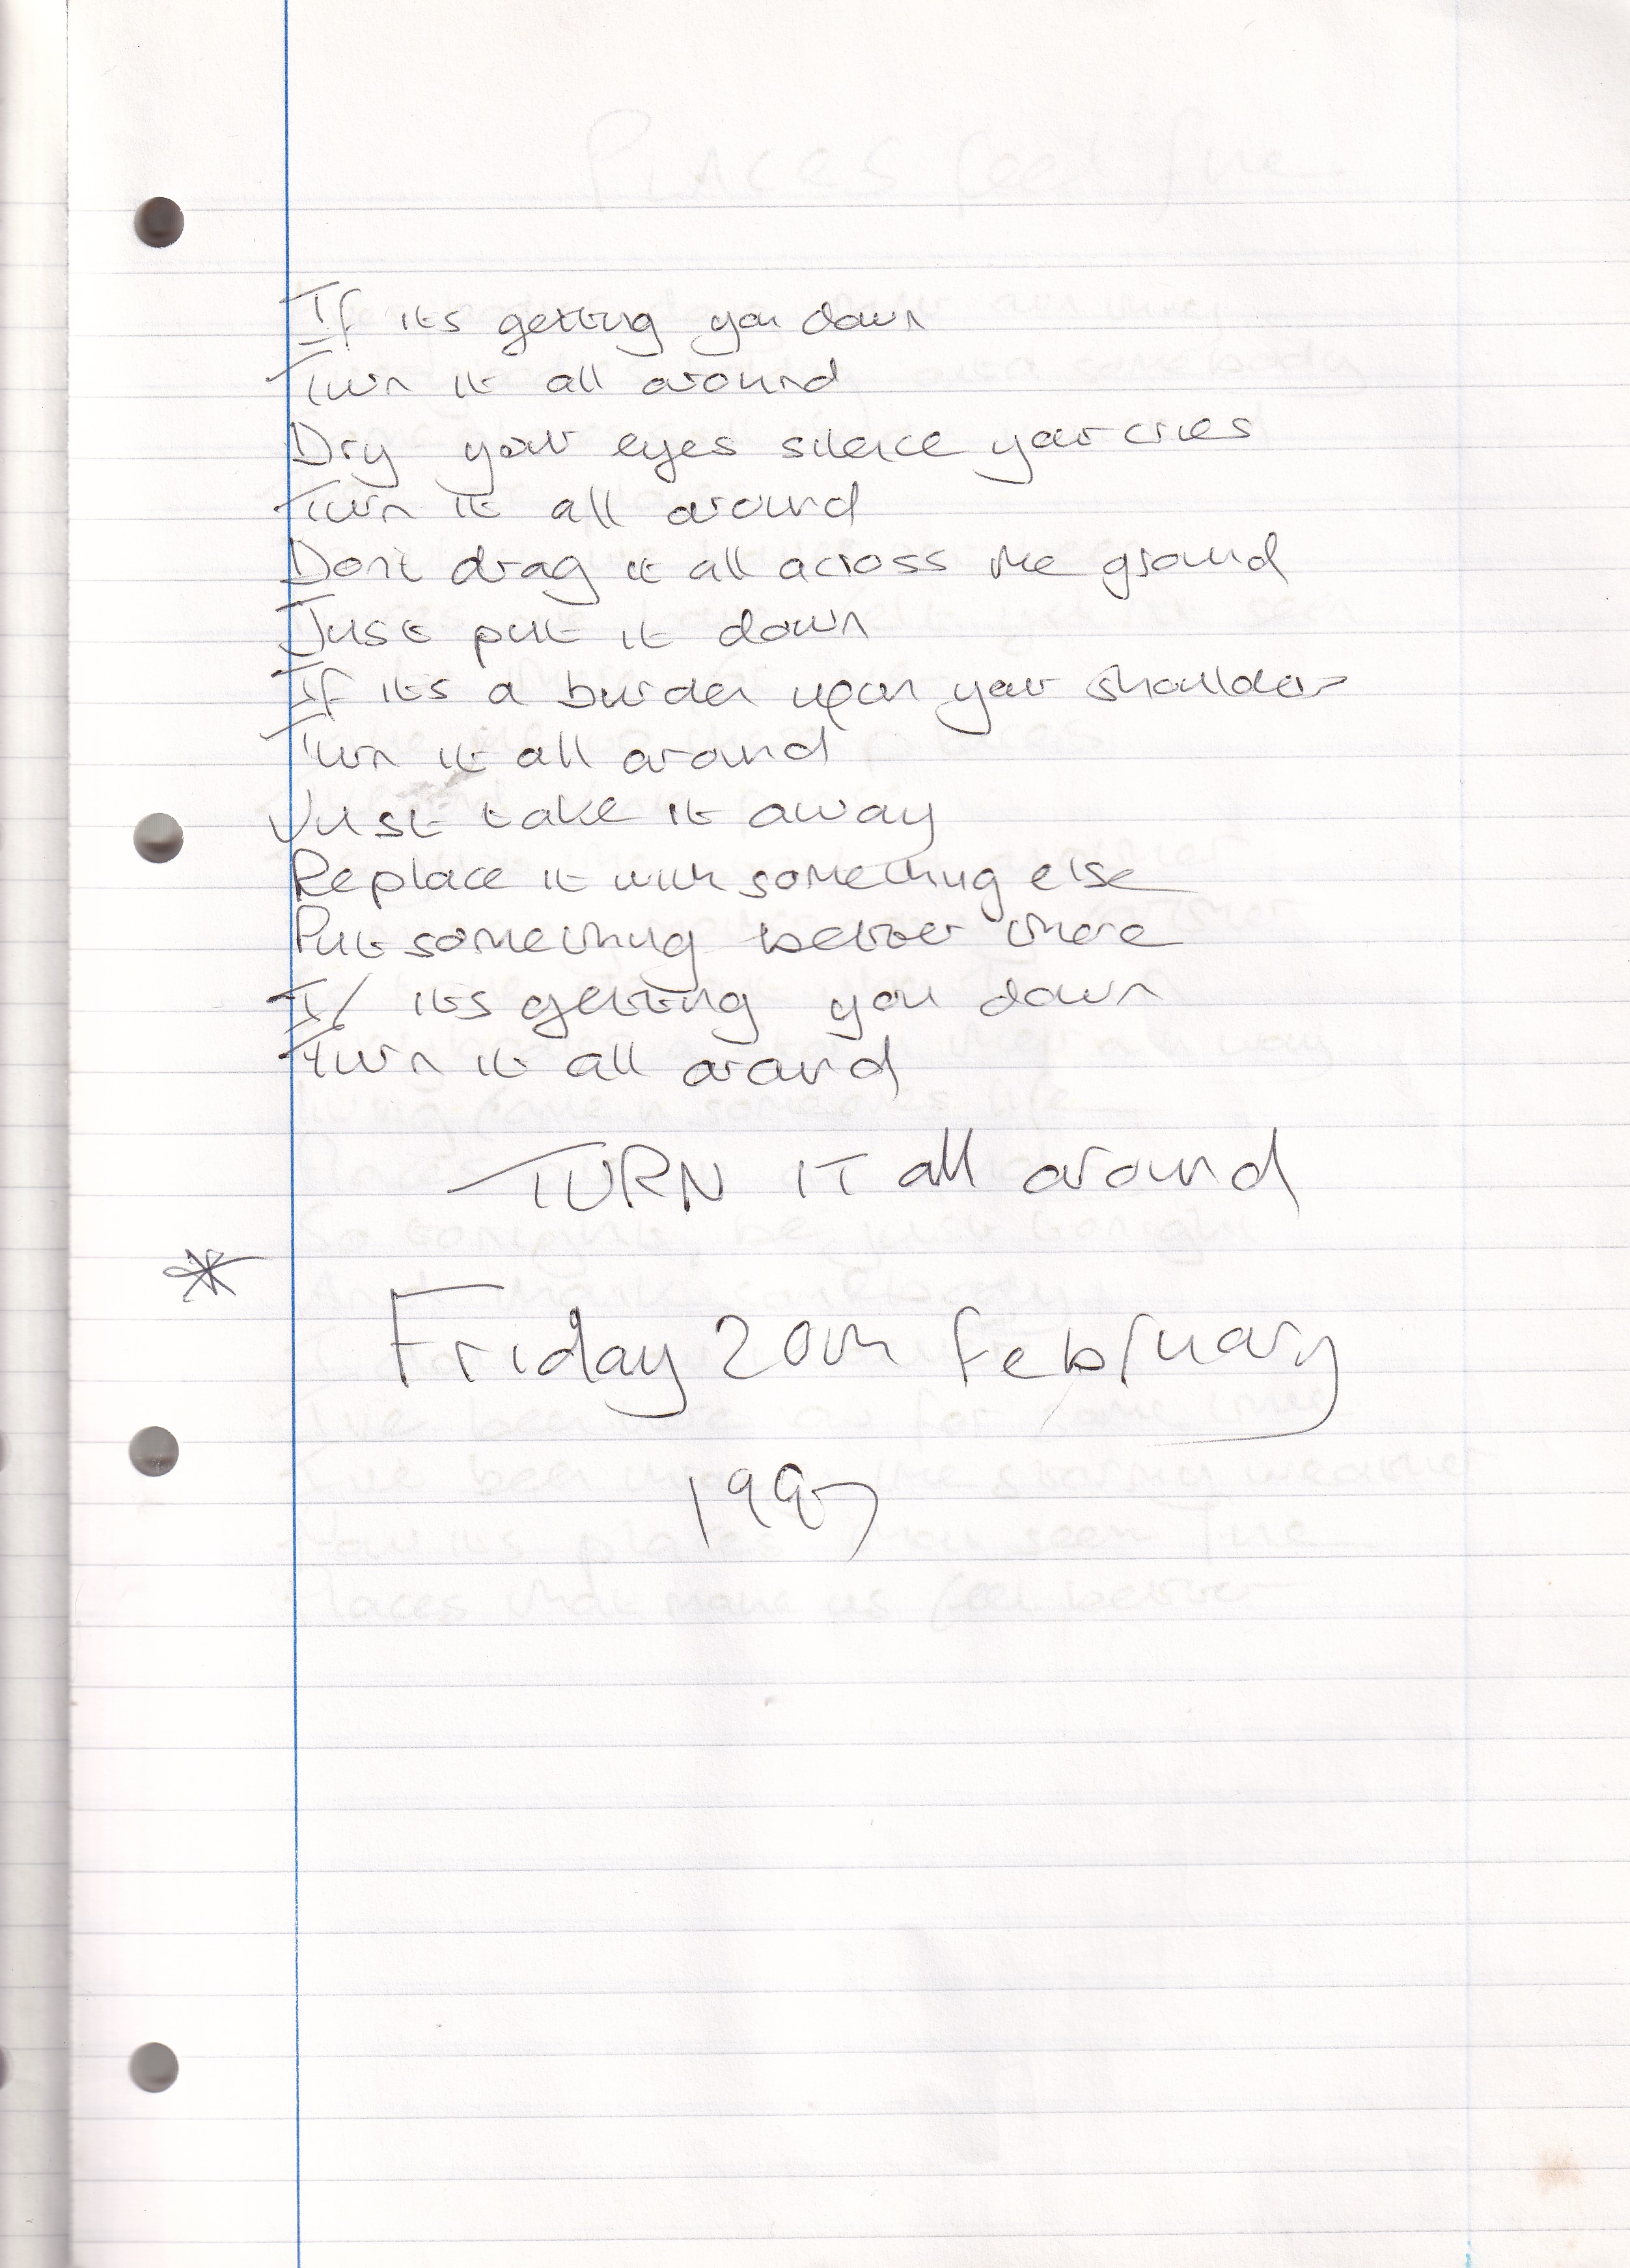 If its getting you down
Turn it all around
Dry your eyes silence your cries
Turn it all around
Dont drag it all across the ground
Just put it down
If its a burden upon your shoulders
Turn it all around
Just take it away
Replace it with something else
Put something better there
If its getting you down
Turn it all around
TURN IT all around
*
Friday 20th February
1997